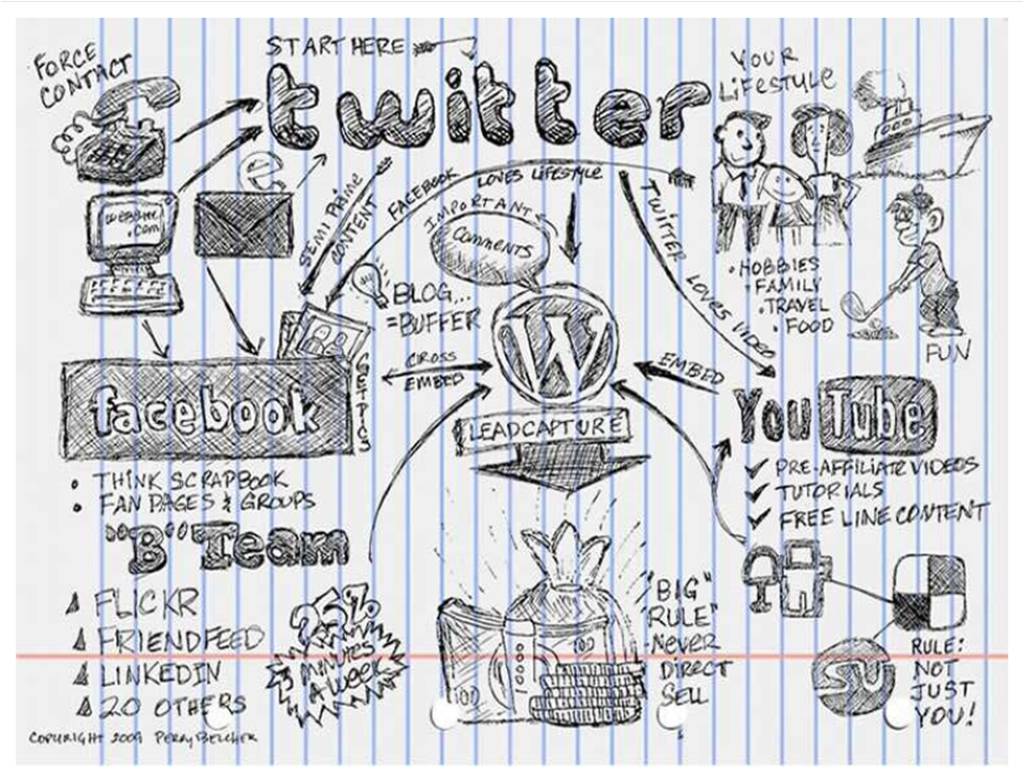 START HERE
FORCE
CONTACT
twitter
YOUR
LIFESTYLE
e
WEBSITE
.COM
SEMI PRIME
CONTENT
FACEBOOK LOVES LIFESTYLE
IMPORTANT
COMMENTS
TWITTER LOVES VIDEO
• HOBBIES
• FAMILY
• TRAVEL
• FOOD
FUN
BLOG...
=BUFFER
W
CROSS
EMBED
EMBED
GET PICS
facebook
LEAD CAPTURE
YouTube
• THINK SCRAPBOOK
• FAN PAGES & GROUPS
✓ PRE-AFFILIATE VIDEOS
✓ TUTORIALS
✓ FREE LINE CONTENT
"B" Team
FLICKR
FRIENDFEED
LINKEDIN
20 OTHERS
25%
3 MINUTES
A WEEK
100
1000
100
"BIG"
RULE"
-NEVER
DIRECT
SELL
SU
RULE:
NOT
JUST
YOU!
COPYRIGHT 2009 PERRY BELCHER